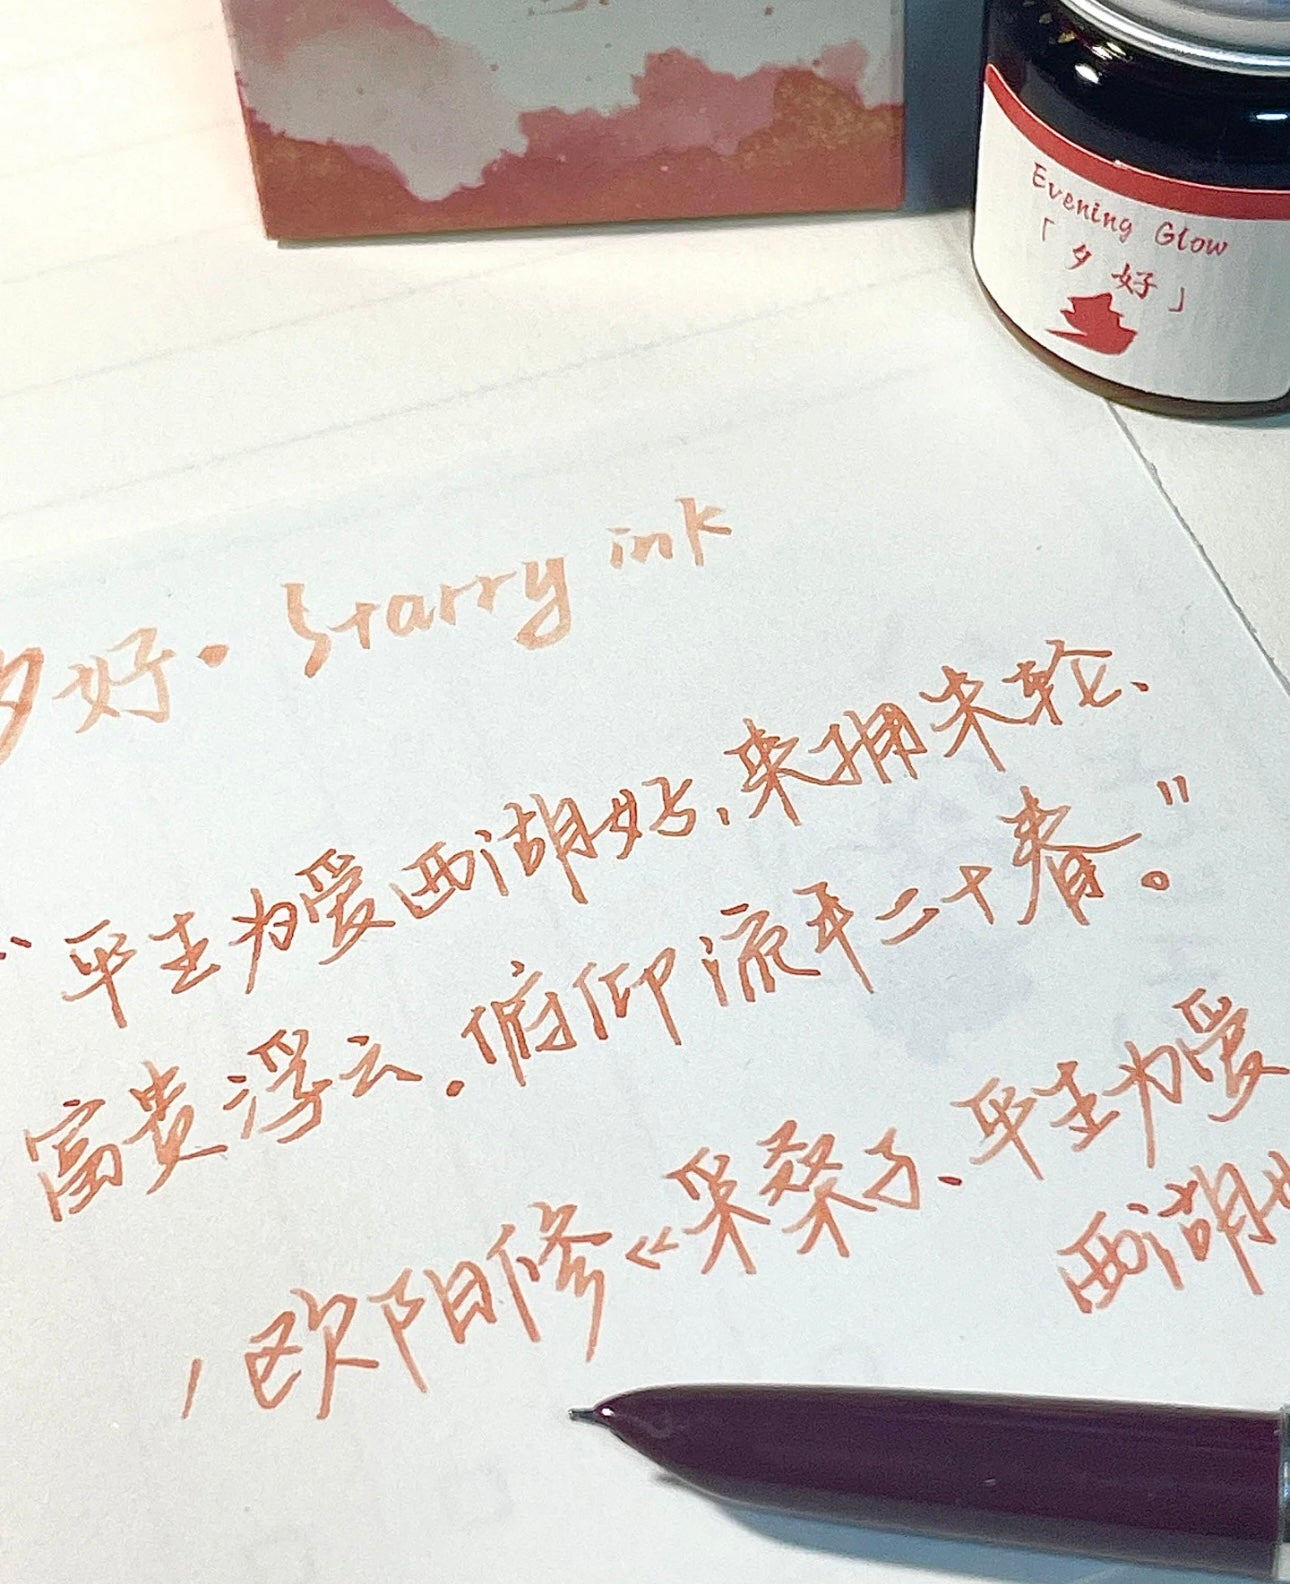 Evening Glow
「夕好」
夕好·Starry ink
“平生为爱西湖好,来拥朱轮、
富贵浮云.俯仰流年二十春。”
/欧阳修《采桑子、平生为爱
西湖